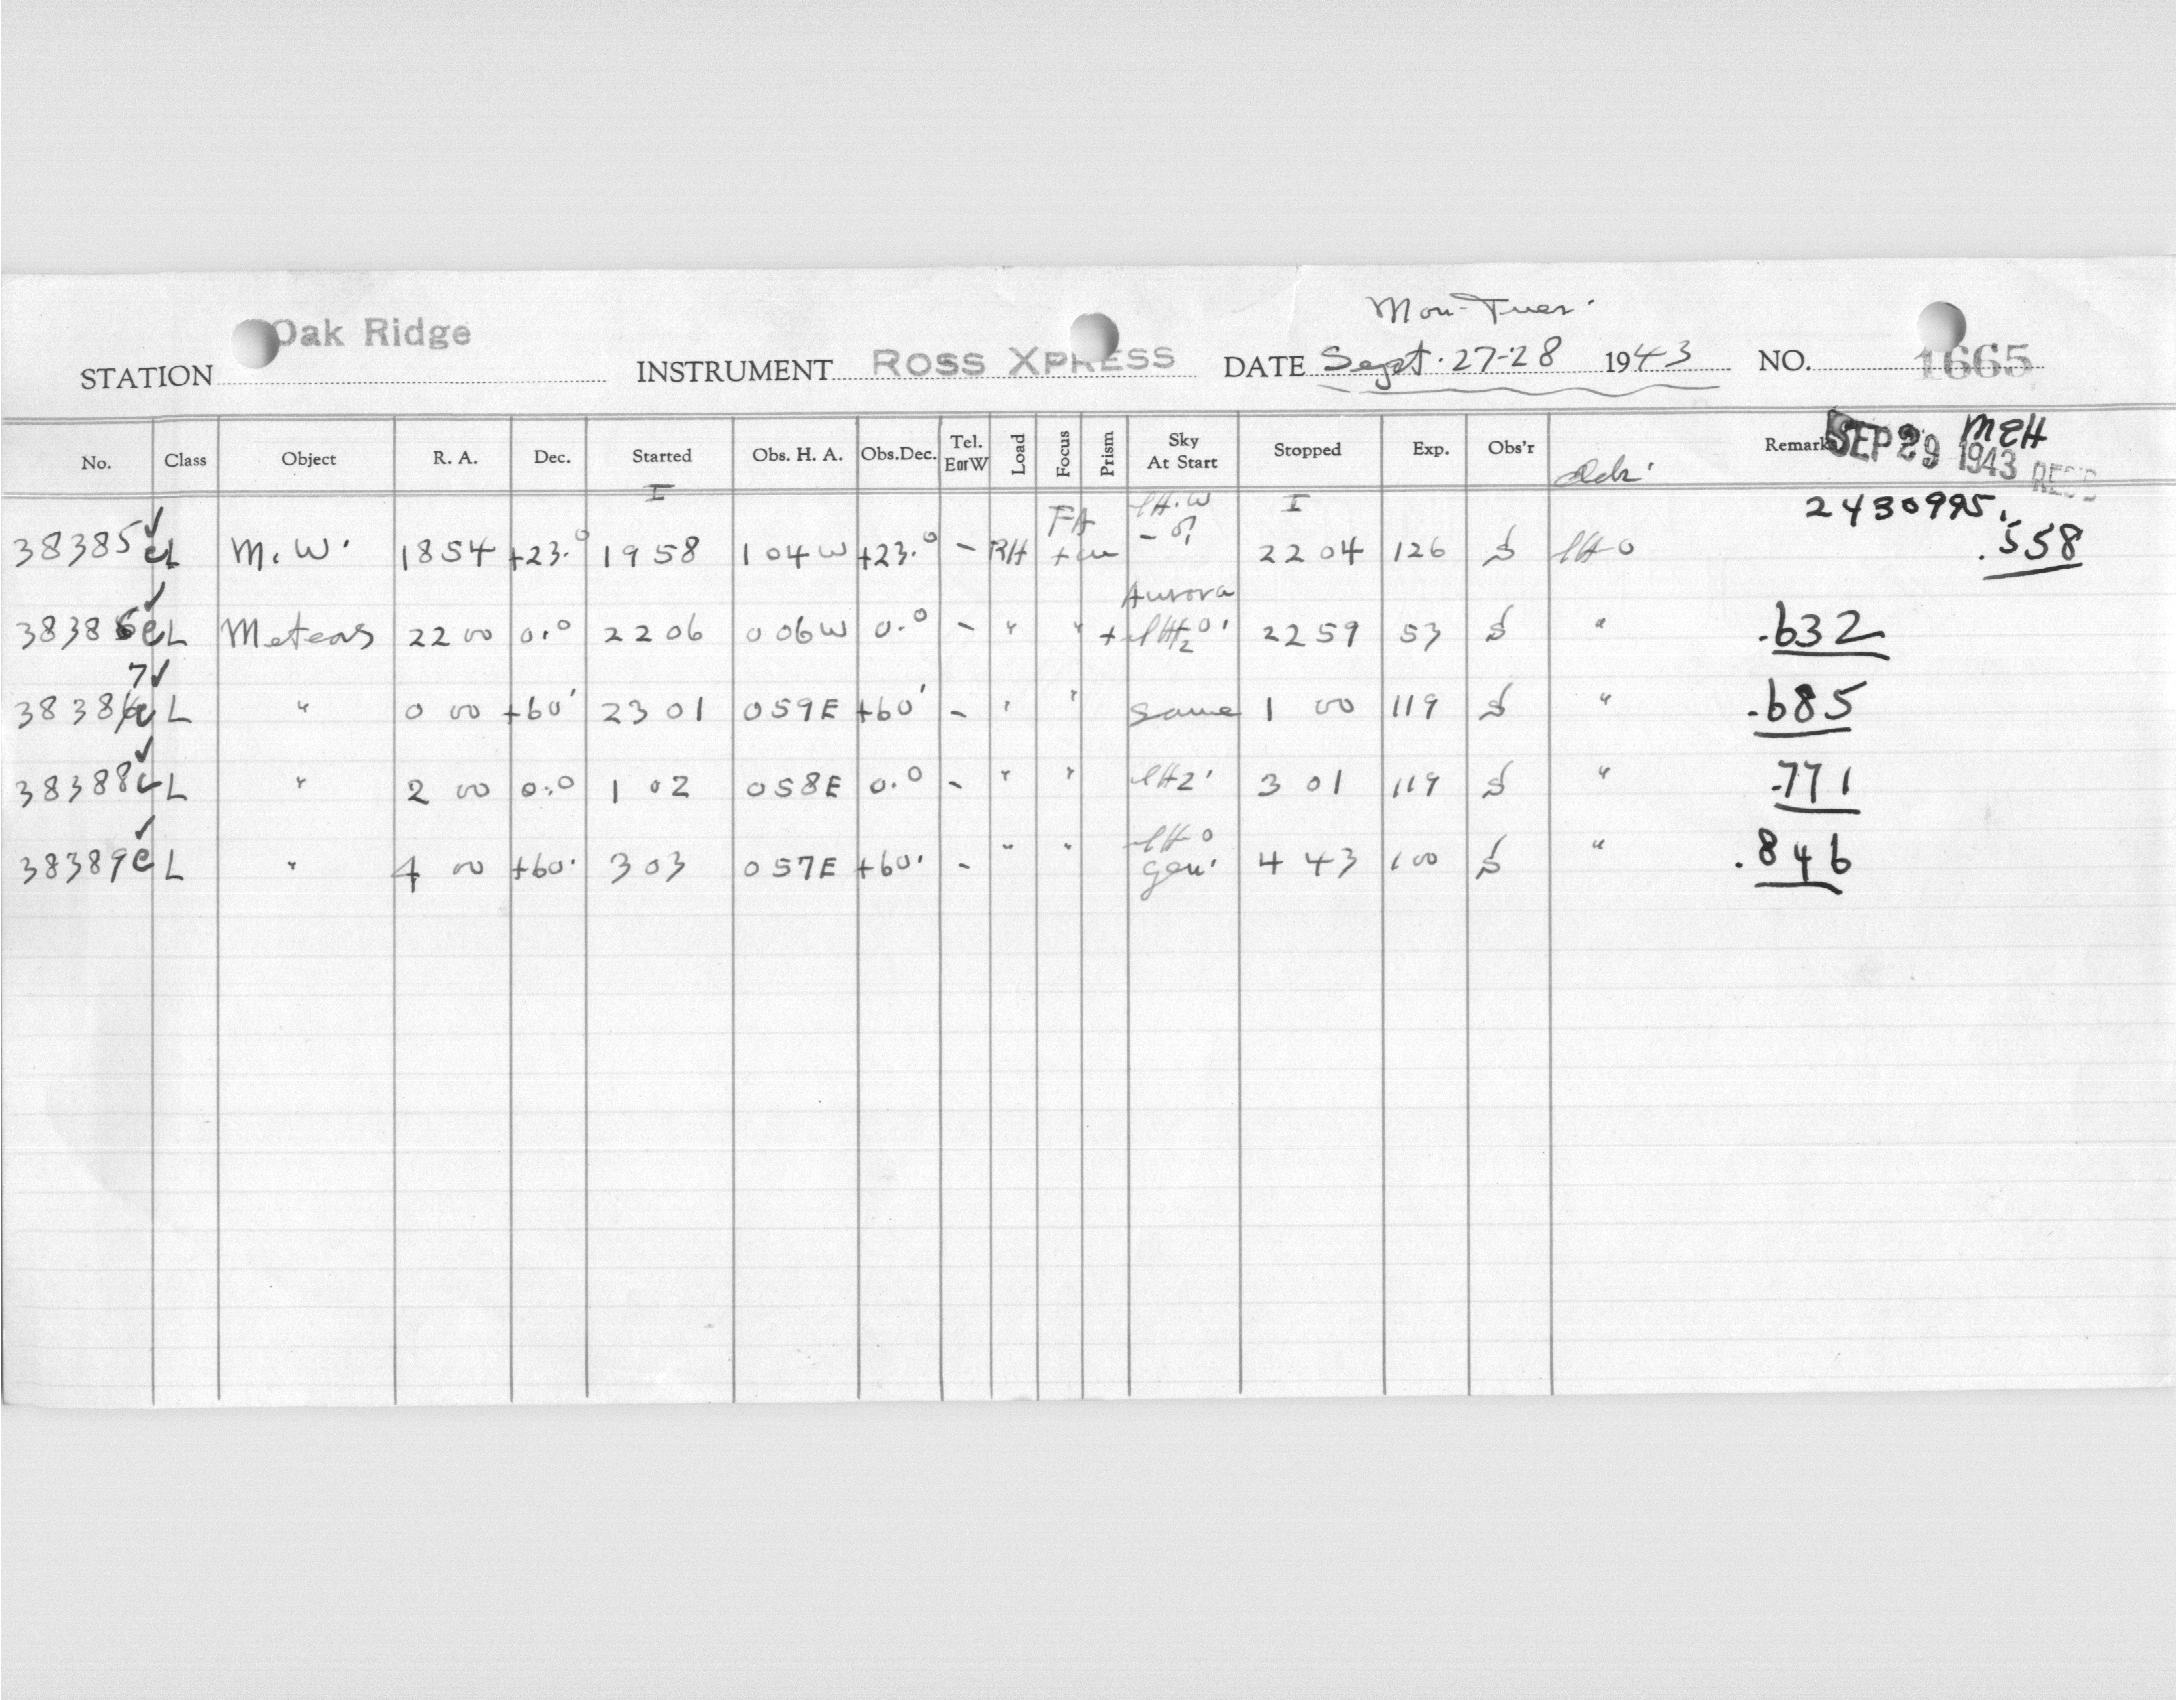 Mon-Tues.
STATION Oak Ridge INSTRUMENT ROSS XPRESS DATE Sept. 27-28 1943 NO. 1665
No. Class Object R. A. Dec. Started Obs. H. A. Obs.Dec. Tel. E or W Load Focus Prism Sky At Start Stopped Exp. Obs'r Remarks SEP 29 1943 REC'D MEH
I I 2430995.
38385 ✓ c L M.W. 18 54 +23.° 19 58 1 04 W +23.° - RH FA 22 04 126 S .558
Aurora
38386 ✓ c L Meteors 22 00 0.° 22 06 0 06 W 0.° - " " 22 59 53 S " .632
7 ✓
38386 c L " 0 00 +60° 23 01 0 59 E +60° - " " same 1 00 119 S " .685
38388 ✓ c L " 2 00 0.° 1 02 0 58 E 0.° - " " 3 01 119 S " .771
38389 ✓ c L " 4 00 +60° 3 03 0 57 E +60° - " " 4 43 100 S " .846